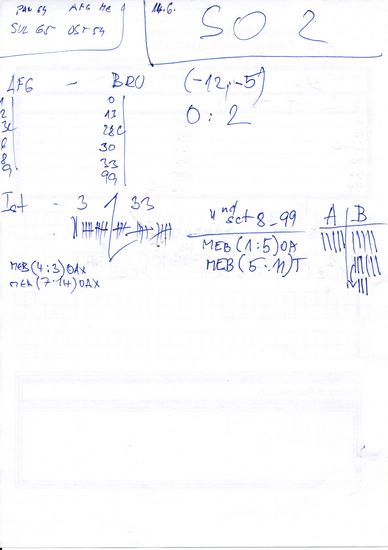 PAN 54 AFG
SUL 65 OST 54
14.6.
SO 2
AFG - BRO (-12, -5)
0 : 2
1 0
2 13
3C 28C
6 30
8 33
9 99
Ist - 3 1 33
4nd set 8-99
A B
MEB (1:5) OA
MEB (5:11) T
MEB (4:3) OAX
MEA (7:14) OAX